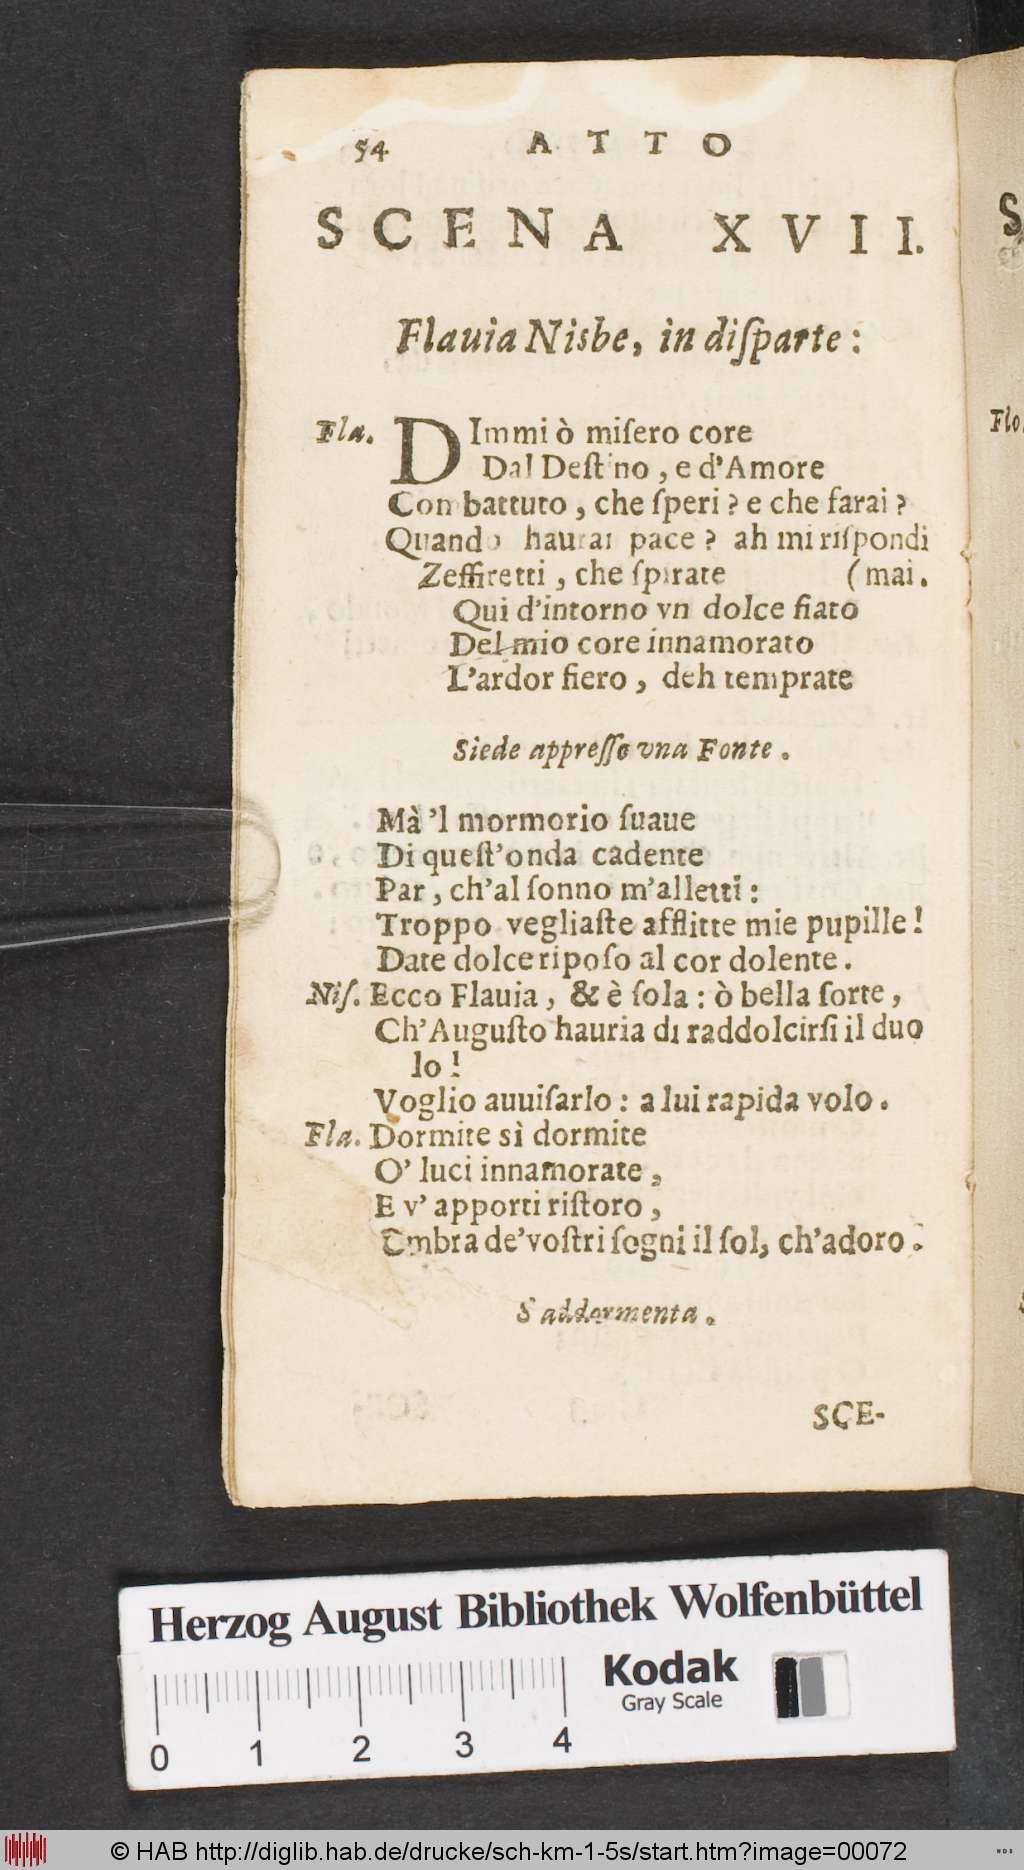 54 ATTO
SCENA XVII.
Flauia Nisbe, in diſparte:
Fla. DImmi ò miſero core
Dal Deſtino, e d'Amore
Combattuto, che ſperi? e che farai?
Quando haurai pace? ah mi riſpondi
Zeffiretti, che ſpirate (mai.
Qui d'intorno vn dolce fiato
Del mio core innamorato
L'ardor fiero, deh temprate
Siede appreſſo vna Fonte.
Mà 'l mormorio ſuaue
Di queſt'onda cadente
Par, ch'al ſonno m'alletti:
Troppo vegliaſte afflitte mie pupille!
Date dolce ripoſo al cor dolente.
Niſ. Ecco Flauia, & è ſola: ò bella ſorte,
Ch'Auguſto hauria di raddolcirſi il duo
lo!
Voglio auuiſarlo: a lui rapida volo.
Fla. Dormite sì dormite
O' luci innamorate,
E v' apporti riſtoro,
Ombra de'voſtri ſogni il ſol, ch'adoro.
S'addormenta.
SCE-
S
Flo.
Herzog August Bibliothek Wolfenbüttel
Kodak
Gray Scale
0 1 2 3 4
© HAB http://diglib.hab.de/drucke/sch-km-1-5s/start.htm?image=00072